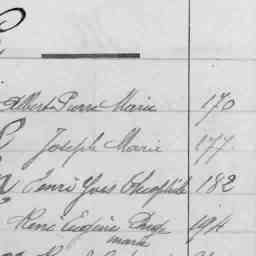 Albert Pierre Marie 170
Joseph Marie 177
Henri Yves Théophile 182
René Eugène 194
Marie